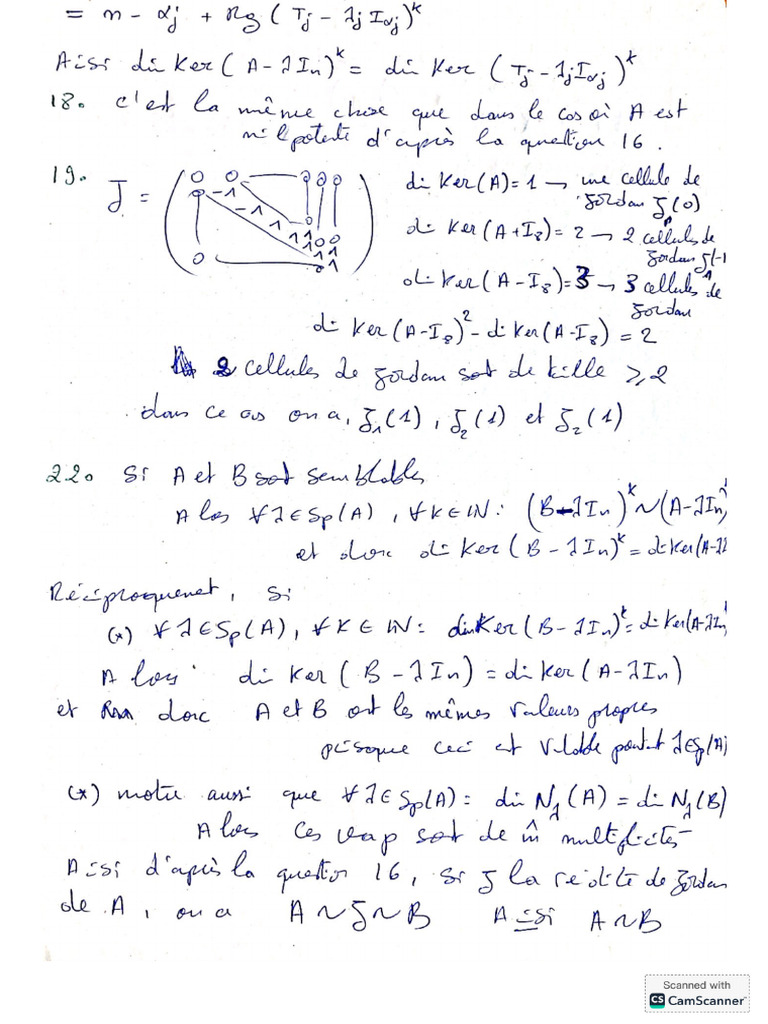 = n - αj + Rg (Tj - λj Iαj)^k
Aisi di Ker (A - λIn)^k = di Ker (Tj - λj Iαj)^k
18. c'est la même chose que dans le cas où A est
nilpotente d'après la question 16.
19. J = di Ker(A) = 1 → une cellule de
Jordan J1(0)
di Ker (A + I8) = 2 → 2 cellules de
Jordan J1(-1)
di Ker (A - I8) = 3 → 3 cellules de
Jordan
di Ker (A - I8)² - di Ker (A - I8) = 2
2 cellules de Jordan sot de taille ≥ 2
dans ce cas on a, J1(1), J2(1) et J2(1)
22. Si A et B sot semblables
Alos ∀λ ∈ Sp(A), ∀k ∈ IN : (B - λIn)^k ~ (A - λIn)
et donc di Ker (B - λIn)^k = di Ker (A - λI
Réciproquenet, si
(*) ∀λ ∈ Sp(A), ∀k ∈ IN : dim Ker (B - λIn)^k = di Ker (A - λIn
Alors di Ker (B - λIn) = di Ker (A - λIn)
et donc A et B ont les mêmes valeurs propres
puisque ceci est valable pour tt λ ∈ Sp(A)
(*) motre aussi que ∀λ ∈ Sp(A) = di Nλ(A) = di Nλ(B)
Alors ces vap sot de m̂ multiplicités
Aisi d'après la question 16, si J la réduite de Jordan
de A, on a A ~ J ~ B Aisi A ~ B
Scanned with
CS CamScanner